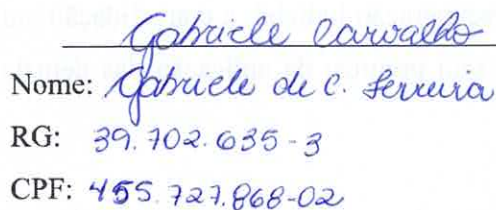 Gabriele Carvalho
Nome: Gabriele de C. Ferreira
RG: 39.702.635-3
CPF: 455.727.868-02